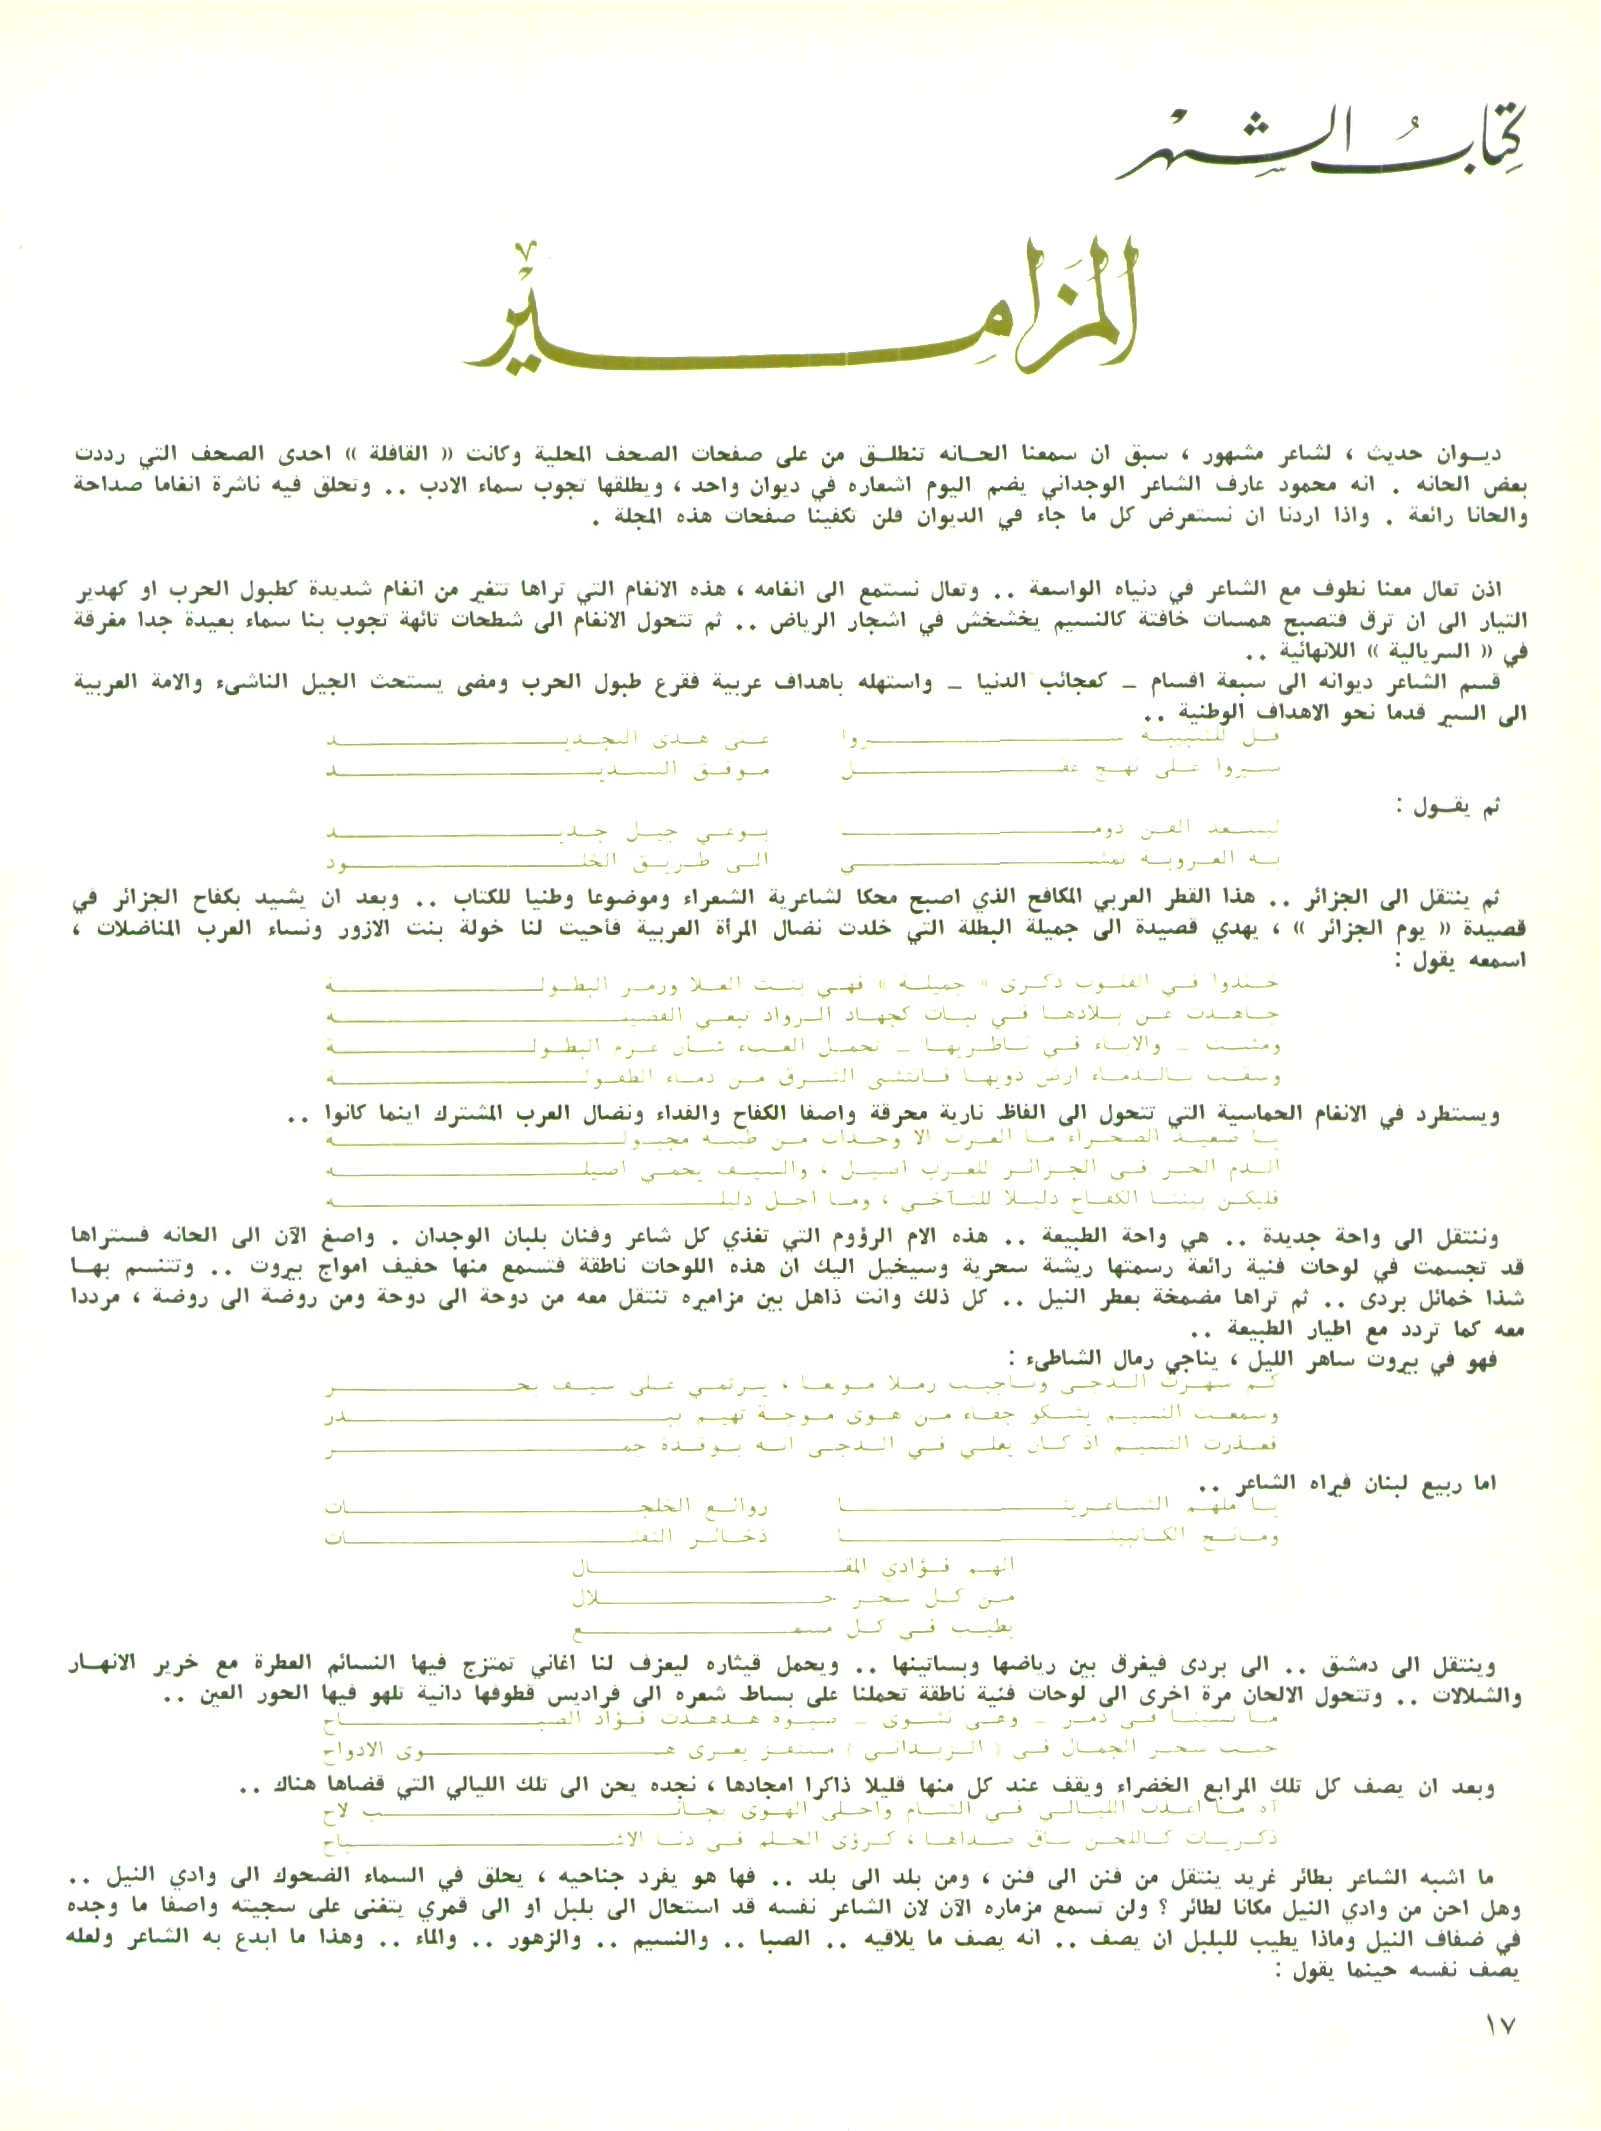 كتاب الشهر
المزامير
ديوان حديث ، لشاعر مشهور ، سبق ان سمعنا الحانه تنطلق من على صفحات الصحف المحلية وكانت « القافلة » احدى الصحف التي رددت
بعض الحانه . انه محمود عارف الشاعر الوجداني يضم اليوم اشعاره في ديوان واحد ، ويطلقها تجوب سماء الادب .. وتحلق فيه ناشرة انغاما صداحة
والحانا رائعة . واذا اردنا ان نستعرض كل ما جاء في الديوان فلن تكفينا صفحات هذه المجلة .
اذن تعال معنا نطوف مع الشاعر في دنياه الواسعة .. وتعال نستمع الى انغامه ، هذه الانغام التي تراها تتغير من انغام شديدة كطبول الحرب او كهدير
التيار الى ان ترق فتصبح همسات خافتة كالنسيم يخشخش في اشجار الرياض .. ثم تتحول الانغام الى شطحات تائهة تجوب بنا سماء بعيدة جدا مغرقة
في « السريالية » اللانهائية ..
قسم الشاعر ديوانه الى سبعة اقسام – كعجائب الدنيا – واستهله باهداف عربية فقرع طبول الحرب ومضى يستحث الجيل الناشىء والامة العربية
الى السير قدما نحو الاهداف الوطنية ..
قل للشبيبة سيروا على هدى التجديد
سيروا على نهج عقل موفق التسديد
ثم يقول :
ليسعد الفن دوما بوعي جيل جديد
به العروبة تمشي الى طريق الخلود
ثم ينتقل الى الجزائر .. هذا القطر العربي المكافح الذي اصبح محكا لشاعرية الشعراء وموضوعا وطنيا للكتاب .. وبعد ان يشيد بكفاح الجزائر في
قصيدة « يوم الجزائر » ، يهدي قصيدة الى جميلة البطلة التي خلدت نضال المرأة العربية فأحيت لنا خولة بنت الازور ونساء العرب المناضلات ،
اسمعه يقول :
خلدوا في القلوب ذكرى « جميلة » فهي بنت العلا ورمز البطولة
جاهدت عن بلادها في ثبات كجهاد الرواد تبغي الفضيلة
ومشت – والاباء في ناظريها – تحمل العبء شأن عزم البطولة
وسقت بالدماء ارض ذويها فانتشى الشرق من دماء الطفولة
ويستطرد في الانغام الحماسية التي تتحول الى الفاظ نارية محرقة واصفا الكفاح والفداء ونضال العرب المشترك اينما كانوا ..
يا صعيد الصحراء ما العرب الا وحدات من طينة مجبوله
الدم الحر في الجزائر للعرب اسيل ، والسيف يحمي اصيله
فليكن بيننا الكفاح دليلا للتآخي ، وما اجل دليله
وننتقل الى واحة جديدة .. هي واحة الطبيعة .. هذه الام الرؤوم التي تغذي كل شاعر وفنان بلبان الوجدان . واصغ الآن الى الحانه فستراها
قد تجسمت في لوحات فنية رائعة رسمتها ريشة سحرية وسيخيل اليك ان هذه اللوحات ناطقة فتسمع منها حفيف امواج بيروت .. وتتنسم بها
شذا خمائل بردى .. ثم تراها مضمخة بعطر النيل .. كل ذلك وانت ذاهل بين مزاميره تنتقل معه من دوحة الى دوحة ومن روضة الى روضة ، مرددا
معه كما تردد مع اطيار الطبيعة ..
فهو في بيروت ساهر الليل ، يناجي رمال الشاطىء :
كم سهرت الدجى وناجيت رملا مولعا ، يرتمي على سيف بحر
وسمعت النسيم يشكو جفاء من هوى موجة تهيم ببدر
فعذرت النسيم اذ كان يغلي في الدجى انه بوقدة جمر
اما ربيع لبنان فيراه الشاعر ..
يا ملهم الشاعرينا روائع الخلجات
ومانح الكاتبينا ذخائر النفثات
الهم فؤادي المقال
من كل سحر حلال
يطيب في كل مسمع
وينتقل الى دمشق .. الى بردى فيغرق بين رياضها وبساتينها .. ويحمل قيثاره ليعزف لنا اغاني تمتزج فيها النسائم العطرة مع خرير الانهار
والشلالات .. وتتحول الالحان مرة اخرى الى لوحات فنية ناطقة تحملنا على بساط شعره الى فراديس قطوفها دانية تلهو فيها الحور العين ..
ما نسينا في دمر – وهي نشوى – صبوة هدهدت فؤاد الصباح
حيث سحر الجمال في ( الزبداني ) مستفز يغري هوى الادواح
وبعد ان يصف كل تلك المرابع الخضراء ويقف عند كل منها قليلا ذاكرا امجادها ، نجده يحن الى تلك الليالي التي قضاها هناك ..
آه ما اعذب الليالي في الشام واحلى الهوى بجانب لاح
ذكريات كاللحن ساق صداها ، كرؤى الحلم في دنا الاشباح
ما اشبه الشاعر بطائر غريد ينتقل من فنن الى فنن ، ومن بلد الى بلد .. فها هو يفرد جناحيه ، يحلق في السماء الضحوك الى وادي النيل ..
وهل احن من وادي النيل مكانا لطائر ؟ ولن تسمع مزماره الآن لان الشاعر نفسه قد استحال الى بلبل او الى قمري يتغنى على سجيته واصفا ما وجده
في ضفاف النيل وماذا يطيب للبلبل ان يصف .. انه يصف ما يلاقيه .. الصبا .. والنسيم .. والزهور .. والماء .. وهذا ما ابدع به الشاعر ولعله
يصف نفسه حينما يقول :
١٧